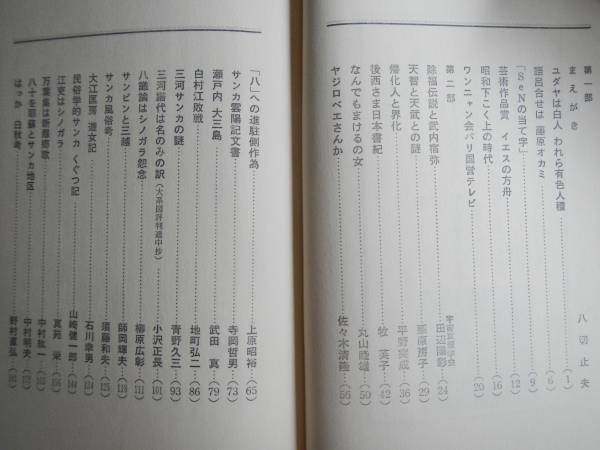 第一部
まえがき 八切止夫 (1)
ユダヤは白人 われら有色人種 (6)
語呂合せは 藤原オカミ (9)
「SeNの当て字」 (12)
芸術作品賞 イエスの方舟 (16)
昭和下こく上の時代
ワンニャン会パリ国営テレビ (20)
第二部
除福伝説と武内宿弥 田辺陽彩 (24)
天智と天武との謎 藤原房子 (29)
帰化人と界化 平野 (36)
後西さま日本書紀 牧英子 (42)
なんでもまけるの女 丸山陸雄 (50)
ヤジロベエさんか 佐々木清隆 (56)
「八」への進駐側作為 上原昭裕 (65)
サンカ雲陽記文書 寺岡哲男 (73)
瀬戸内 大三島 武田真 (79)
白村江敗戦 地町弘二 (86)
三河サンカの謎 青野久三 (93)
三河譜代は名のみの訳(大系図評判遮中抄) 小沢正長 (101)
八議論はシノガラ怨念 柳原広彰 (111)
サンピンと三越 師岡輝夫 (118)
サンカ風俗考 須藤和夫 (125)
大江匡房 遊女記 石川幸男 (134)
民俗学的サンカ くぐつ記 山崎健一郎
江吏はシノガラ 真苑栄
万葉集は新羅郷歌 中村紘一
八十を耶蘇とサンカ地区 中村明夫
はっか 白秋考 野村直弘